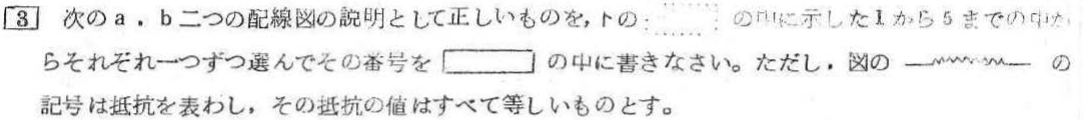 3 次のa，b二つの配線図の説明として正しいものを，下の の中に示した1から5までの中か
らそれぞれ一つずつ選んでその番号を の中に書きなさい。ただし，図の の
記号は抵抗を表わし，その抵抗の値はすべて等しいものとす。